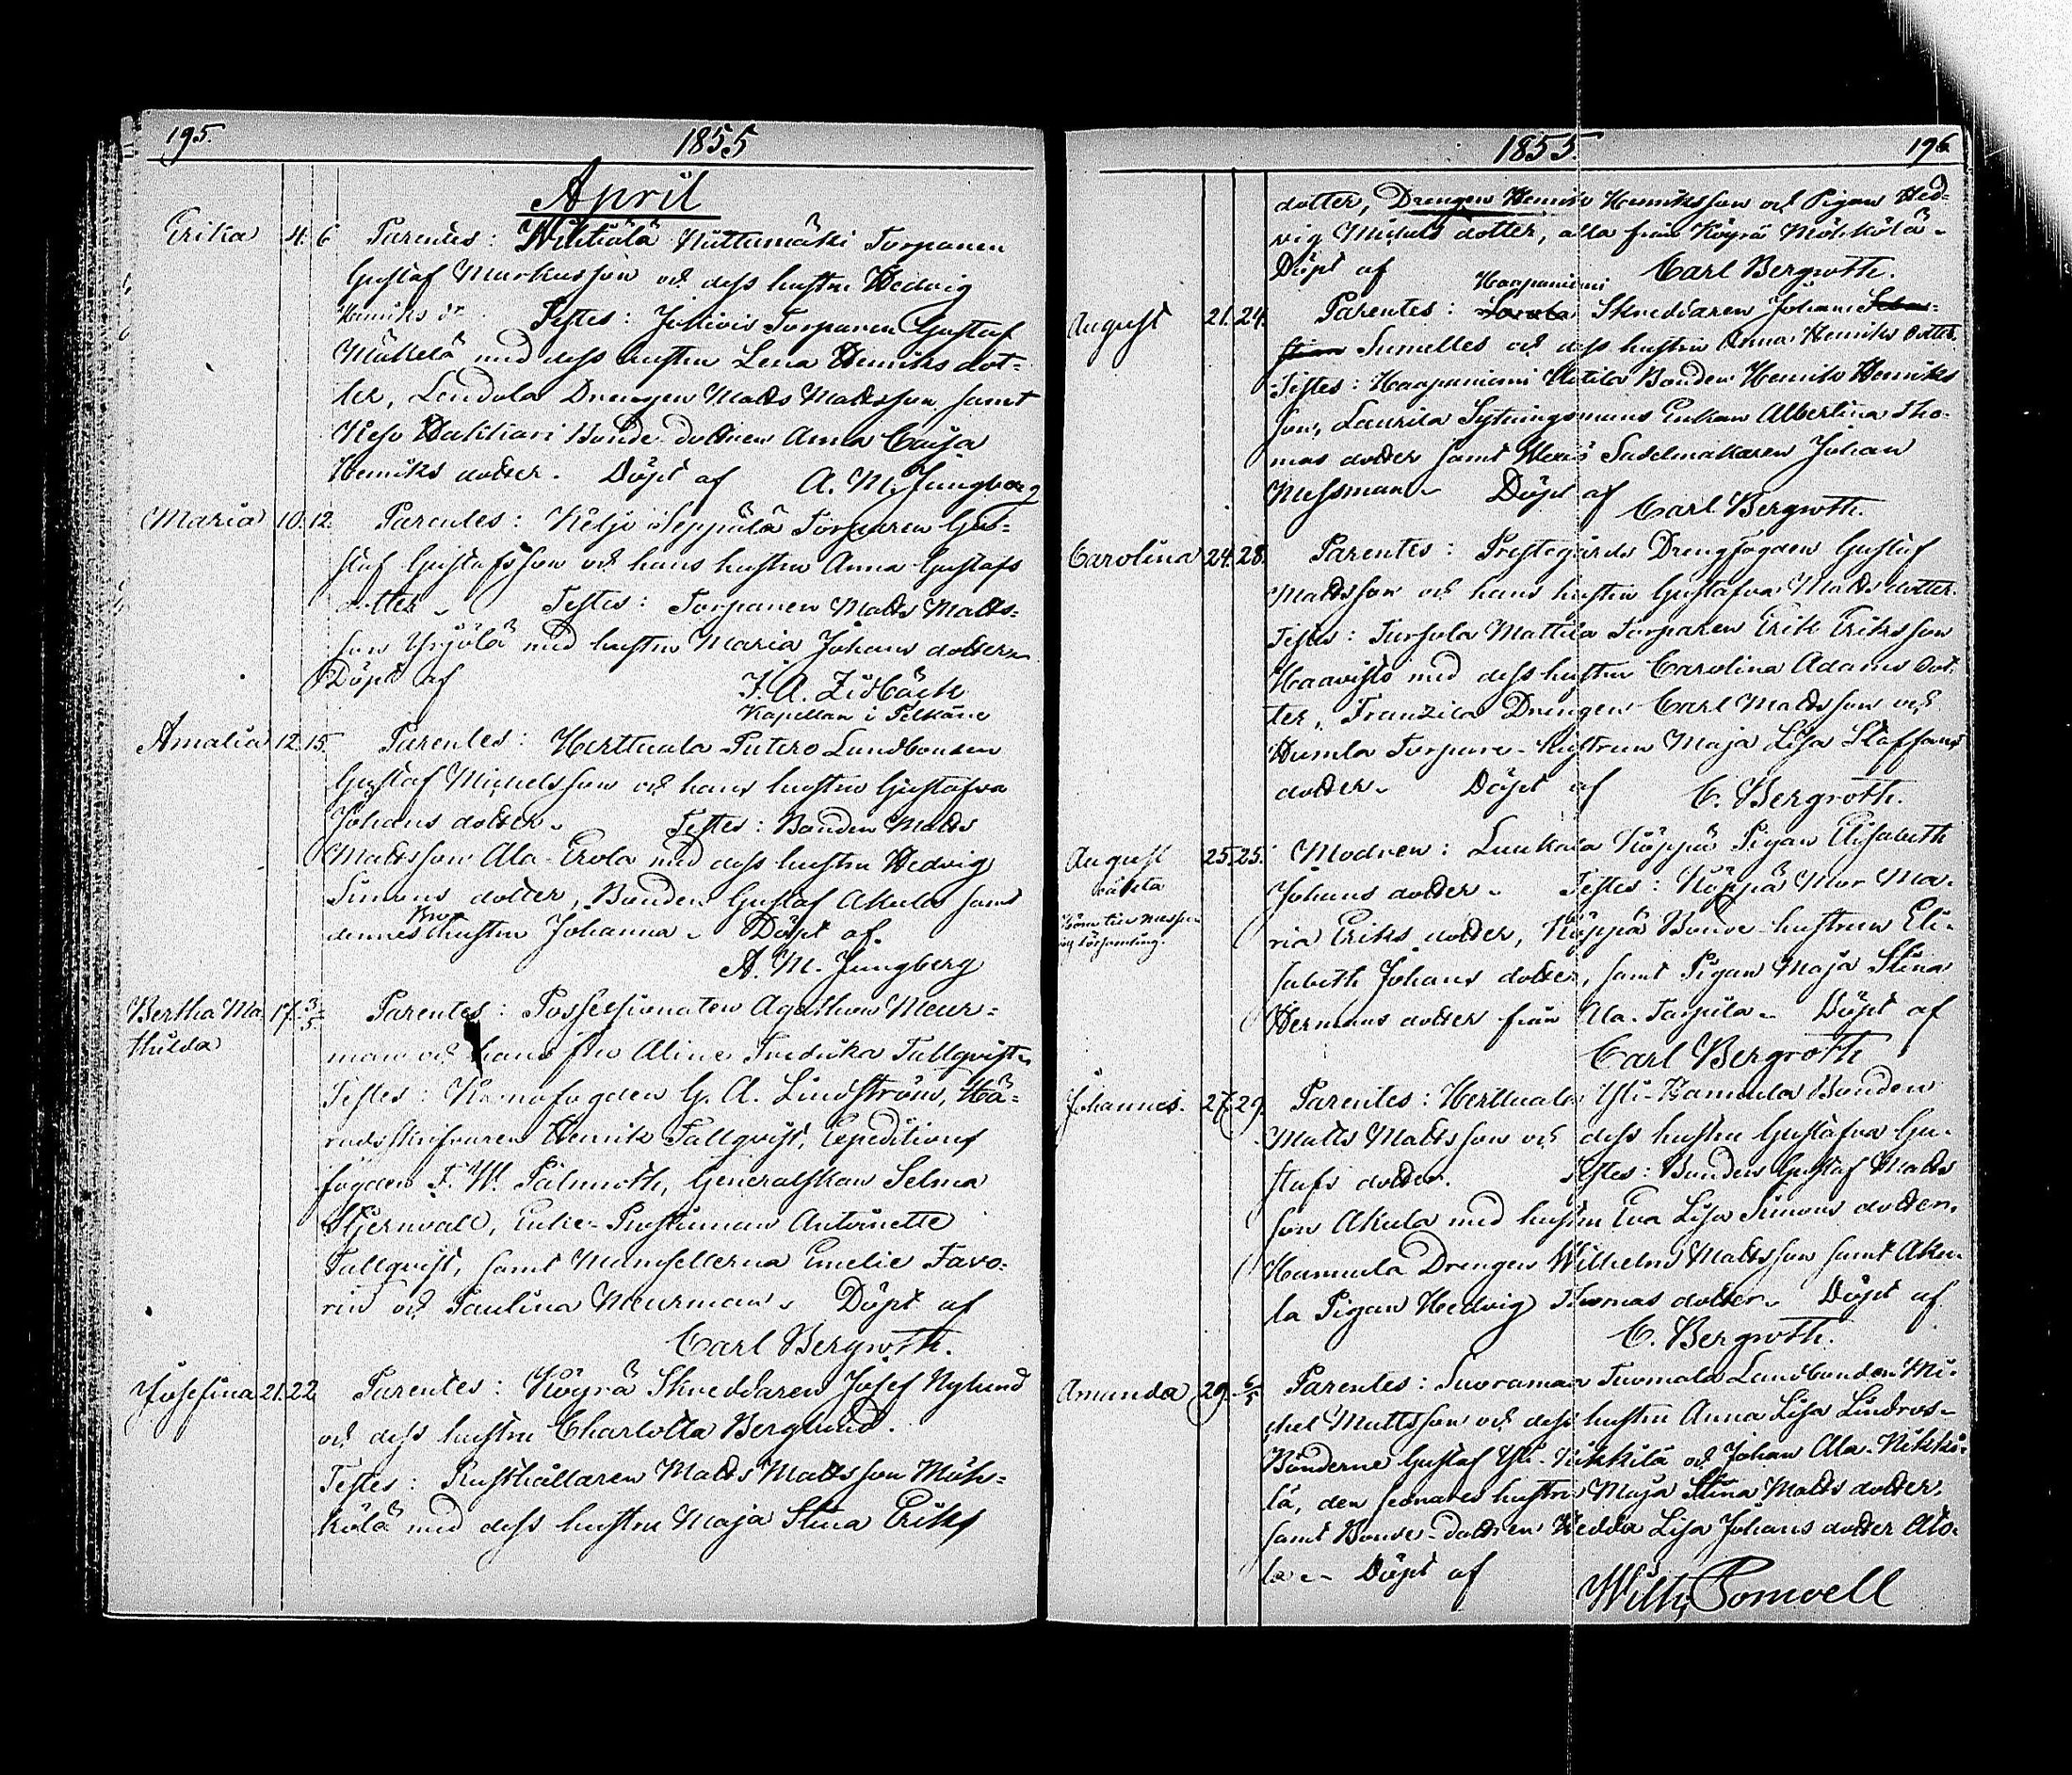 195.
1855
April
Erika 4. 6 Parentes: Niittumäki Torparen
Gustaf Markusson och dess hustru Hedvig
Henriks dr. Testes: Torparen Gustaf
Mäkelä med dess hustru Lena Henriks dot-
ter, Lendola Drengen Matts Mattsson samt
Hakkari Bonde dottren Anna Caisa
Henriks dotter. Döpt af A. M. Jungberg
Maria 10. 12. Parentes: Seppälä Torparen Gu-
staf Gustafsson och hans hustru Anna Gustafs
dotter. Testes: Torparen Matts Matts-
son Yrjölä med hustru Maria Johans dotter.
Döpt af F. A. Zidbäck
Kapellan i Pelkäne
Amalia 12. 15. Parentes: Herttuala Landbonden
Gustaf Michelsson och hans hustru Gustafva
Johans dotter. Testes: Bonden Matts
Mattsson Ala-Erola med dess hustru Hedvig
Simons dotter, Bonden Gustaf Akula samt
dennes hustru Johanna. Döpt af
A. M. Jungberg
Bertha Ma- 17. 3/5 Parentes: Possessionaten Agathon Meur-
thilda
man och hans fru Aline Fredrika Tallqvist.
Testes: Kronofogden G. A. Lindström, Hä-
radsskrifvaren Henrik Tallqvist, Expeditions
fogden F. W. Palmroth, Generalskan Selma
Stjernvall, Enke-Prostinnan Antoinette
Tallqvist, samt Mamsellerna Emelie Favo-
rin och Paulina Meurman. Döpt af
Carl Bergroth.
Josefina 21. 22 Parentes: Köyrä Skreddaren Josef Nylund
och dess hustru Charlotta Berglund.
Testes: Rusthållaren Matts Mattsson Möh-
kölä med dess hustru Maja Stina Eriks
1855.
196
dotter, Drengen Henrik Henriksson och Pigan Hed-
vig Michels dotter, alla från Köyrä Möhkölä.
Döpt af Carl Bergroth.
Haapaniemi
August 21. 24. Parentes: Skreddaren Johan
Sumelles och dess hustru Anna Henriks dotter.
Testes: Haapaniemi Matila Bonden Henrik Henriks
son, Laurila Sytningsmans Enkan Albertina Tho-
mas dotter samt Sadelmakaren Johan
Nessman. Döpt af Carl Bergroth.
Carolina 24. 28. Parentes: Prestegårds Drengfogden Gustaf
Mattsson och hans hustru Gustafva Matts dotter.
Testes: Tursola Mattila Torparen Erik Eriksson
Haavisto med dess hustru Carolina Adams dot-
ter, Franzila Drengen Carl Mattsson och
Humla Torpare-hustrun Maja Lisa Staffans
dotter. Döpt af C. Bergroth.
August 25. 25. Modren: Luukala Köppä Pigan Elisabeth
oäkta
Johans dotter. Testes: Köppä Mor Ma-
ria Eriks dotter, Köppä Bonde-hustrun Eli-
sabeth Johans dotter, samt Pigan Maja Stina
Hermans dotter från Ala-Tarpila. Döpt af
Carl Bergroth
Johannes. 27. 29. Parentes: Herttuala Yli-Hammula Bonden
Matts Mattsson och dess hustru Gustafva Gu-
stafs dotter. Testes: Bonden Gustaf Matts
son Akula med hustru Eva Lisa Simons dotter,
Hammula Drengen Wilhelm Mattsson samt Aku-
la Pigan Hedvig Thomas dotter. Döpt af
C. Bergroth.
Amanda 29. 6/5 Parentes: Suoraman Tuomala Landbonden Mi-
chel Mattsson och dess hustru Anna Lisa Lindros.
Bönderne Gustaf Yli-Nikkilä och Johan Ala-Nikki-
lä, den sednares hustru Maja Stina Matts dotter,
samt Bonde-dottren Hedda Lisa Johans dotter Ato-
la. Döpt af
Wilh. Pomoell